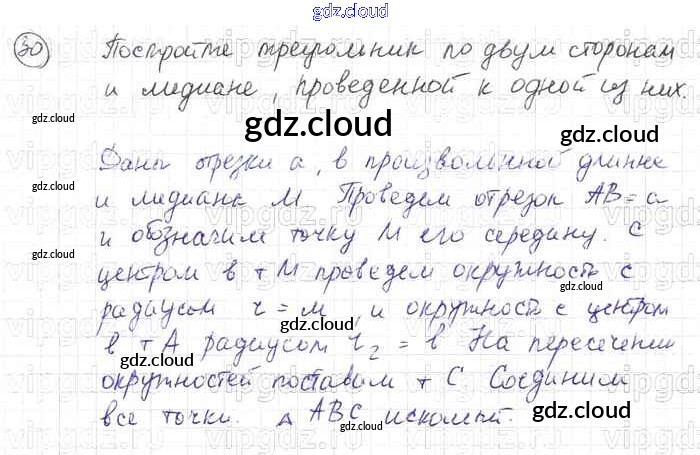 gdz.cloud
30 Постройте треугольник по двум сторонам
и медиане, проведенной к одной из них.
gdz.cloud
gdz.cloud
gdz.cloud
Даны отрезки a, в произвольной длинне
gdz.cloud
и медиана М Проведем отрезок АВ=a
и обозначим точку М его середину. С
центром в т М проведем окружность с
gdz.cloud
gdz.cloud
радиусом r = м, и окружность с центром
gdz.cloud
в т А радиусом r₂ = в На пересечении
gdz.cloud
окружностей поставим т С. Соединим
все точки. △ АВС искомый.
gdz.cloud
gdz.cloud
gdz.cloud